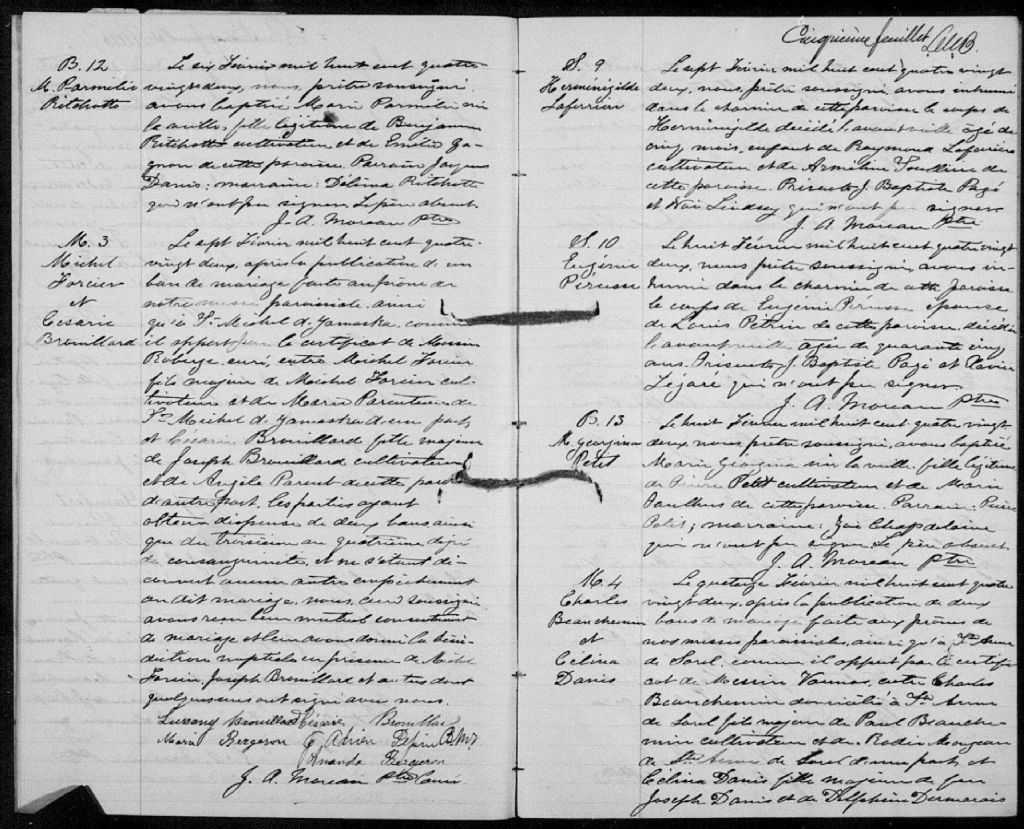 B. 12
M. Parmelie
Ritchotte
Le six Février mil huit cent quatre
vingt deux, nous, prêtre soussigné,
avons baptisé Marie Parmelie née
la veille, fille légitime de Benjamin
Ritchotte cultivateur et de Emélie Ga-
gnon de cette paroisse. Parrain Jacques
Danis; marraine: Délima Ritchotte
qui n'ont pu signer. Le père absent.
J. A. Moreau Ptre
M. 3
Michel
Forcier
et
Césarie
Brouillard
Le sept Février mil huit cent quatre-
vingt deux, après la publication d'un
ban de mariage faite au prône de
notre messe paroissiale, ainsi
qu'à St Michel d'Yamaska, comme
il appert par le certificat de Messire
Roberge, curé, entre Michel Forcier
fils majeur de Michel Forcier cul-
tivateur et de Marie Parenteau de
St Michel d'Yamaska d'une part,
et Césarie Brouillard fille majeure
de Joseph Brouillard cultivateur
et de Angèle Parent de cette paroisse
d'autre part, les parties ayant
obtenu dispense de deux bans ainsi
que du troisième au quatrième degré
de consanguinité, et ne s'étant dé-
couvert aucun autre empêchement
au dit mariage, nous, curé soussigné
avons reçu leur mutuel consentement
de mariage et leur avons donné la béné-
diction nuptiale en présence de Michel
Forcier, Joseph Brouillard et autres dont
quelques uns ont signé avec nous.
Brouillard Césarie Brouillar
Maria Bergeron Adrien
Amanda Bergeron
J. A. Moreau Ptre Curé
Cinquième feuillet
S. 9
Herménégilde
Laferrière
Le sept Février mil huit cent quatre vingt
deux, nous, prêtre soussigné avons inhumé
dans le charnier de cette paroisse le corps de
Herménégilde décédé l'avant veille âgé de
cinq mois, enfant de Raymond Laferrière
cultivateur et de Arméline de
cette paroisse. Présents J. Baptiste Pagé
et Noé Lindsey qui n'ont pu signer
J. A. Moreau Ptre
S. 10
Eugénie
Pérusse
Le huit Février mil huit cent quatre vingt
deux, nous prêtre soussigné, avons in-
humé dans le charnier de cette paroisse
le corps de Eugénie Pérusse épouse
de Louis Pétrin de cette paroisse, décédée
l'avant veille âgée de quarante cinq
ans. Présents J. Baptiste Pagé et Xavier
Légaré qui n'ont pu signer
J. A. Moreau Ptre
B. 13
M. Georgina
Petit
Le huit Février mil huit cent quatre vingt
deux, nous, prêtre soussigné, avons baptisé
Marie Georgina née la veille fille légitime
de Pierre Petit cultivateur et de Marie
Paulhus de cette paroisse. Parrain: Pierre
Petit; marraine: Zoé Chapdelaine
qui n'ont pu signer. Le père absent
J. A. Moreau Ptre
M. 4
Charles
Beauchemin
et
Célina
Danis
Le quatorze Février mil huit cent quatre
vingt deux, après la publication de deux
bans de mariage faite aux prônes de
nos messes paroissiales, ainsi qu'à Ste Anne
de Sorel, comme il appert par le certifi-
cat de Messire entre Charles
Beauchemin domicilié à Ste Anne
de Sorel fils majeur de Paul Beauche-
min cultivateur et de Mongeau
de Ste Anne de Sorel d'une part, et
Célina Danis fille majeure de feu
Joseph Danis et de Delphine Desmarais